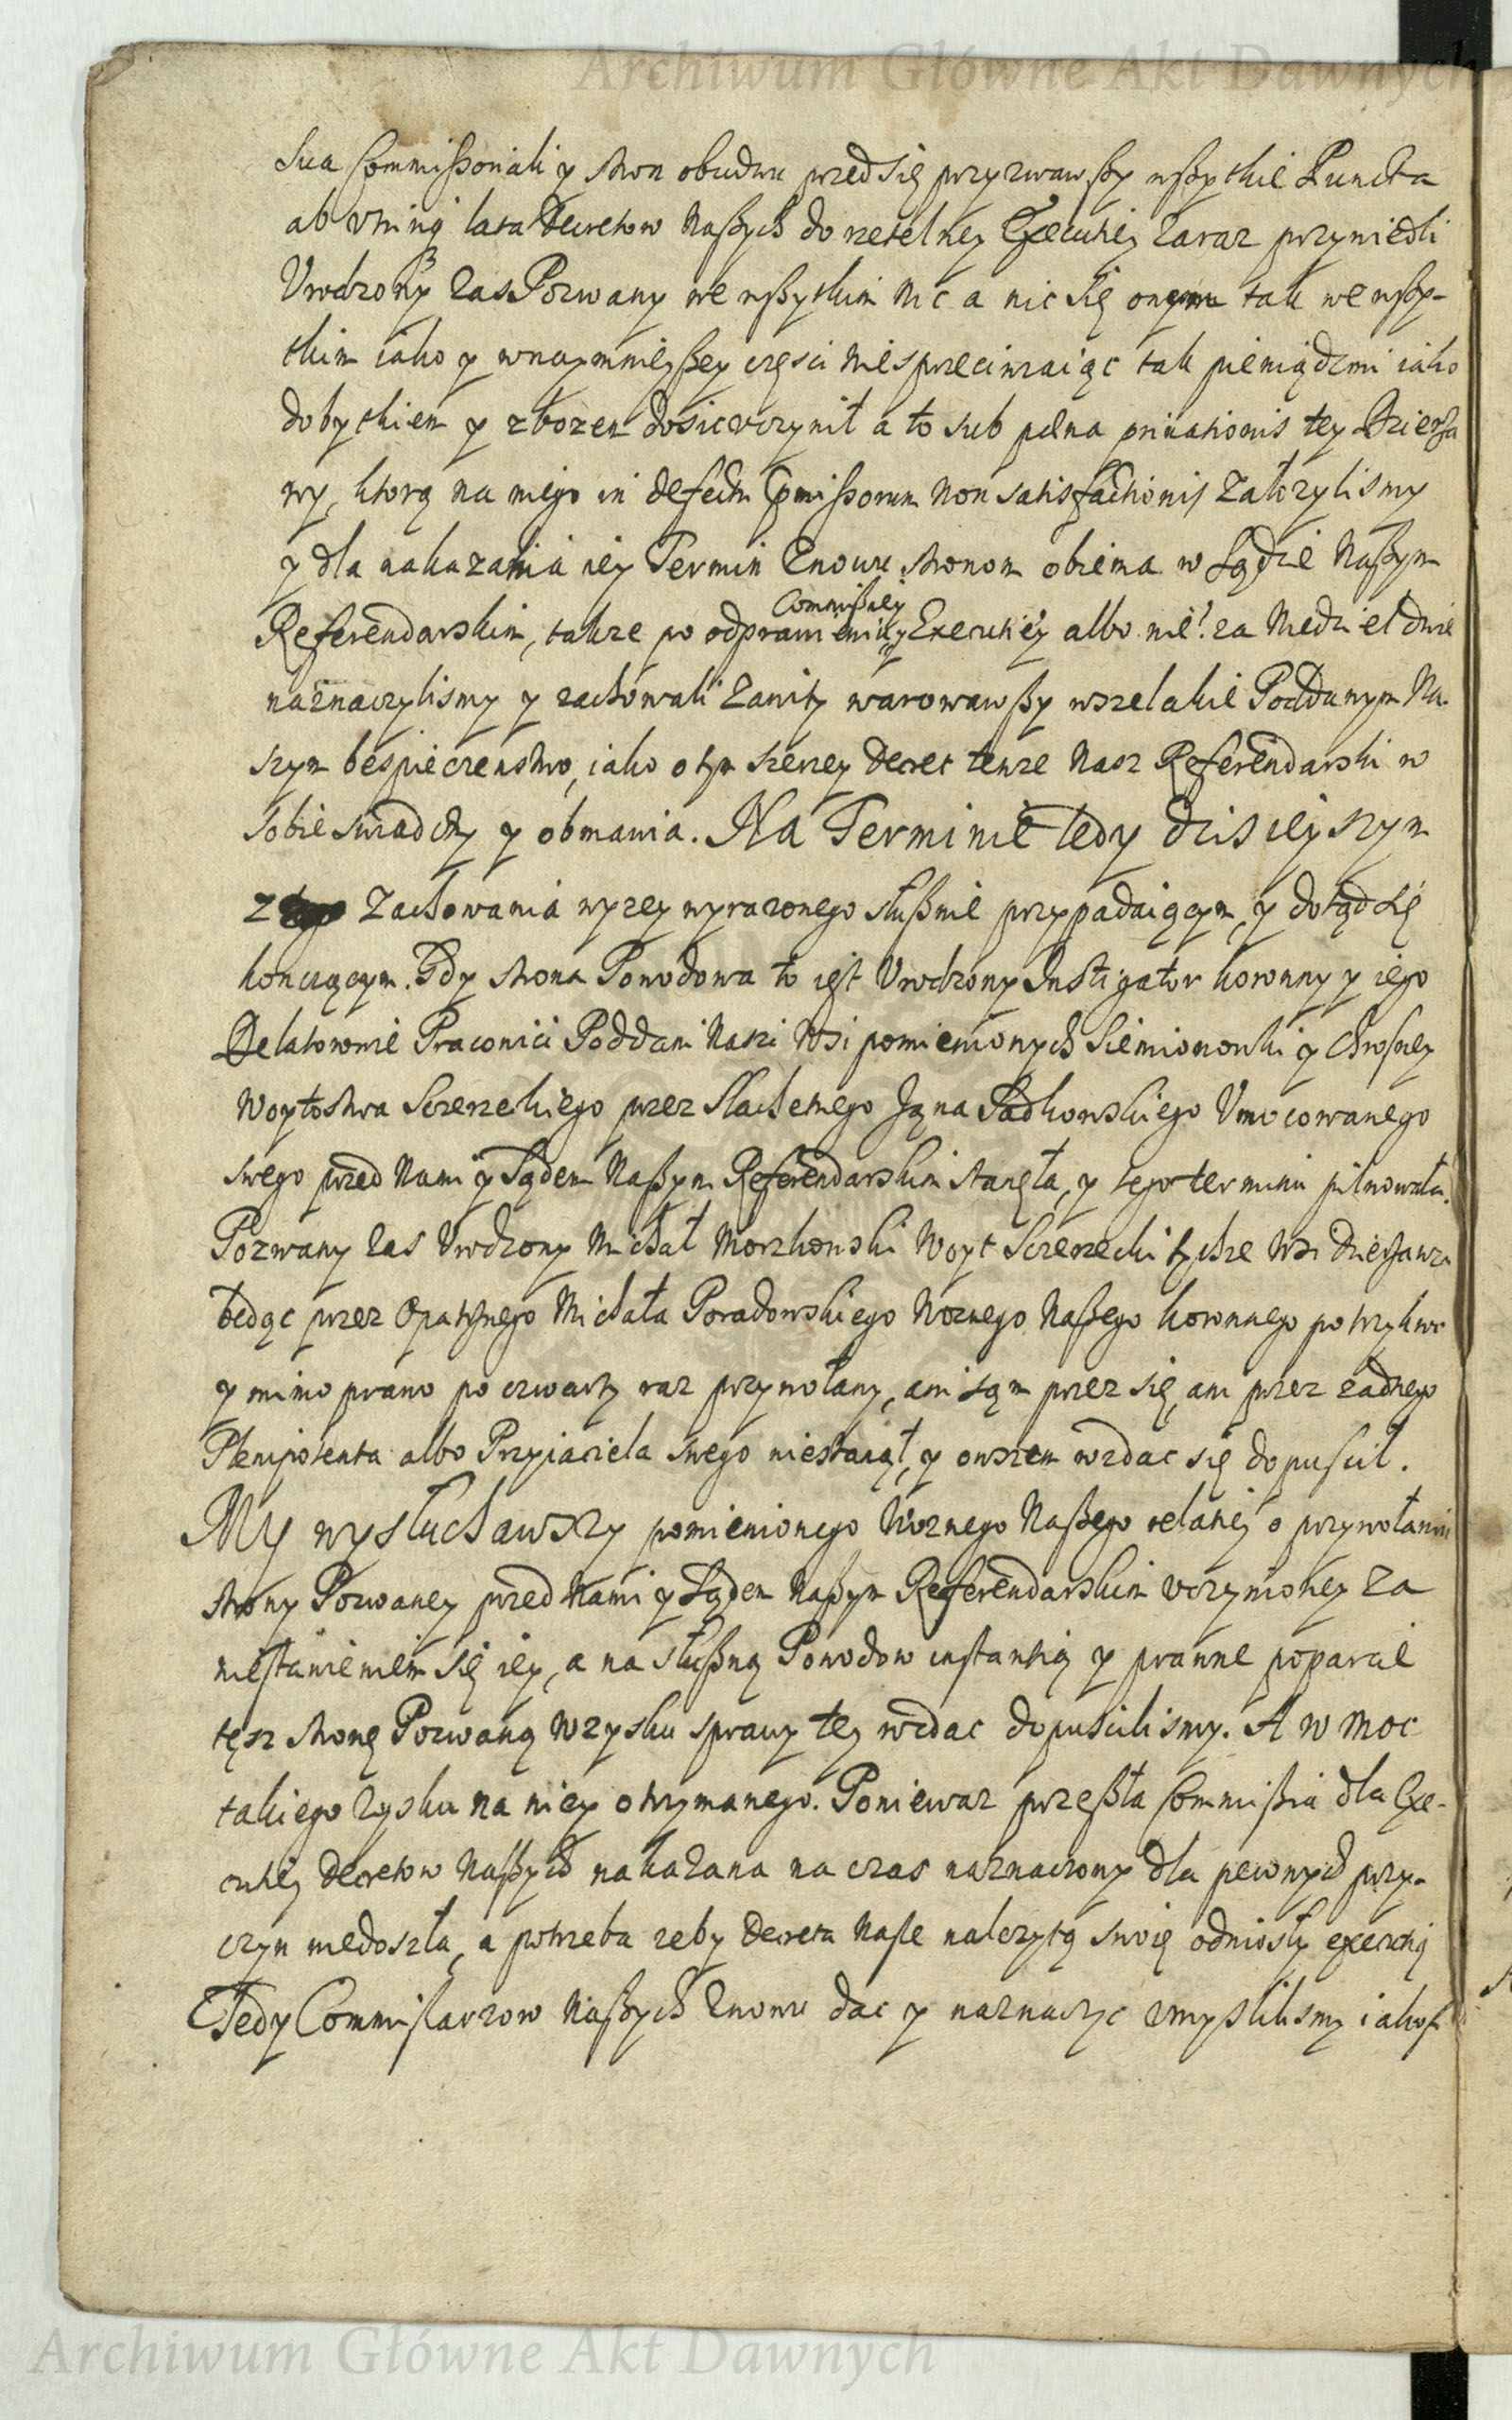 Archiwum Główne Akt Dawnych
sua Commissoriali y stron obudwu przed się przyzwawszy wszytkie Puncta
ab utrinq lata Decretow Naszych do rzetelney Executiey zaraz przywiedli
Urodzony zas Pozwany we wszytkim nic a nic się onym tak we wszy-
tkim iako y wnaymnieyszey częsci niesprzeciwiaiąc tak pieniądzmi iako
dobytkiem y zbozem dosicuczynił a to sub pæna privationis tey Dzierża
wy, ktorą na niego in defectu Cōmissorum non satisfactionis założylismy
y dla nakazania iey Termin znowu stronom obiema w Sądzie Naszym
Commissiey
Referendarskim, takze po odprawieniu y Executiey albo nie? za Niedziel dwie
naznaczylismy y zachowali zawity warowawszy wszelakie Poddanym Na-
szym bespieczenstwo, iako o tym szerzey Decret tenze Nasz Referendarski w
sobie swiadczy y obmawia. Na Terminie tedy dzisieyszym
z Zachowania wyzey wyrazonego słusznie przypadaiącym, y dotąd się
kończącym. Gdy strona Powodowa to iest Urodzony Instigator koronny y iego
Delatorowie Pracowici Poddani Naszi Wsi pomienionych Siemionowki y Chrosney
Woytostwa Sczerzeckiego przez Slachetnego Jana Sadkowskiego Umocowanego
swego przed Nami y Sądem Naszym Referendarskim stanęła, y tego terminu pilnowała.
Pozwany zas Urodzony Michał Morzkowski Woyt Sczerzecki tychze Wsi Dzierżawca
będąc przez Opatrznego Michała Poradowskiego Woznego Naszego koronnego potrzykroc
y mimo prawo po czwarty raz przywołany, ani sąm przez się, ani przez żadnego
Plenipotenta albo Przyiaciela swego niestanął, y owszem wzdac się dopuscił.
My wysłuchawszy pomienionego Woznego Naszego relatiey o przywołaniu
strony Pozwaney przed Nami y Sądem Naszym Referendarskim uczynioney za
niestanieniem się iey, a na słuszną Powodow instantią y prawne poparcie
tęsz stronę Pozwaną wzysku sprawy tey wzdac dopuscilismy. A w moc
takiego zysku na niey otrzymanego. Poniewaz przeszła Commissia dla Exe-
cutiey Decretow Naszych nakazana na czas naznaczony dla pewnych przy-
czyn niedoszła, a potrzeba zeby Decreta Nasze nalezytą swoię odniosły executią
Tedy Commissarzow Naszych znowu dac y naznaczyc umyslilismy iakosz
Archiwum Główne Akt Dawnych